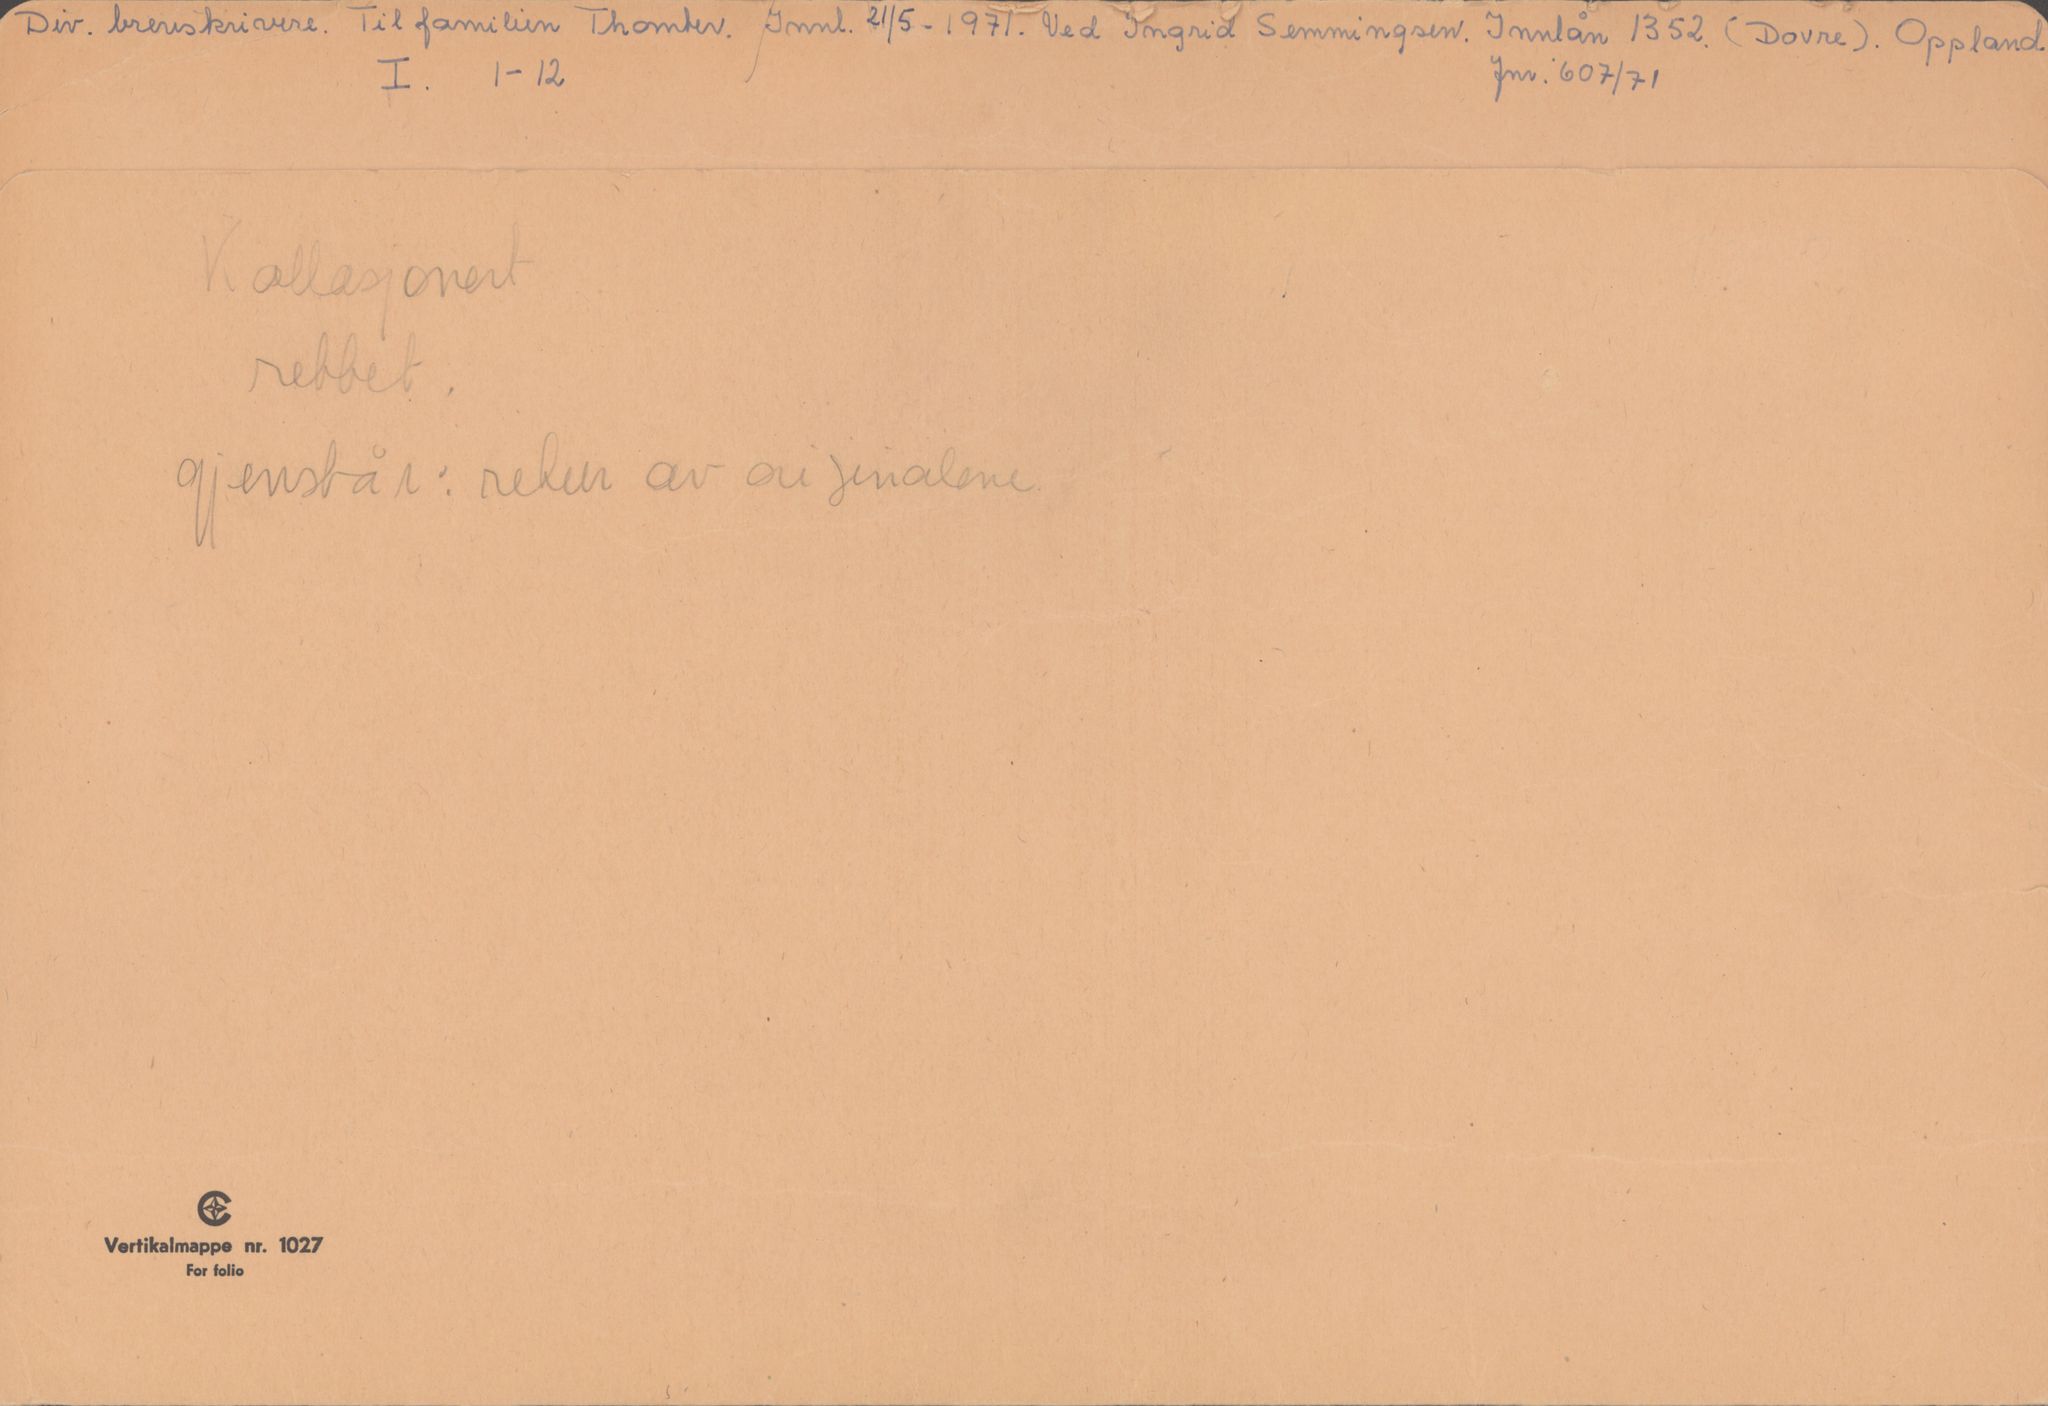 Div. brevskrivere. Til familien Thomter. Innl. 21/5-1971. Ved Ingrid Semmingsen. Innlån 1352. (Dovre). Oppland
I. 1-12 Jnr. 607/71
Kollasjonert
rettet.
gjenstår: retur av originalene.
Vertikalmappe nr. 1027
For folio